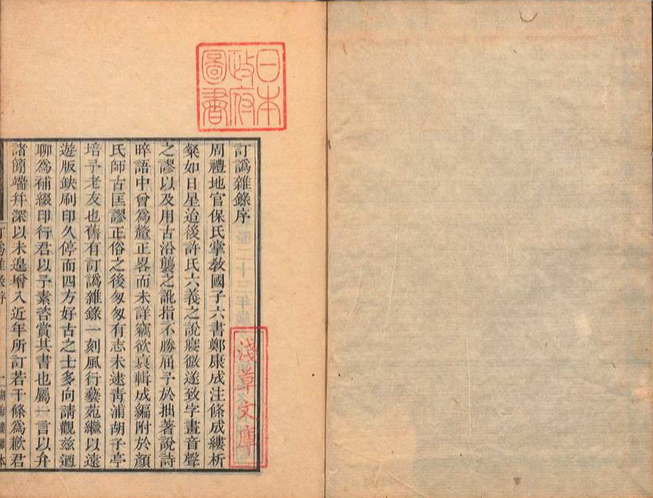 日本
政府
圖書
訂譌雜錄序
周禮地官保氏掌敎國子六書鄭康成注條成縷析
粲如日星迨後許氏六義之說寖微遂致字畫音聲
之謬以及用古沿襲之訛指不勝屈予於拙著說詩
晬語中曾為釐正畧而未詳竊欲裒輯成編附於顏
氏師古匡謬正俗之後匆匆有志未逮靑浦胡子亭
培予老友也舊有訂譌雜錄一刻風行藝苑繼以遠
遊版鈌刷印久停而四方好古之士多向請觀兹迺
聊為補綴印行君以予素嗜賞其書也屬一言以弁
諸簡端幷深以未遑增入近年所訂若干條為歉君
淺草文庫
二十三年